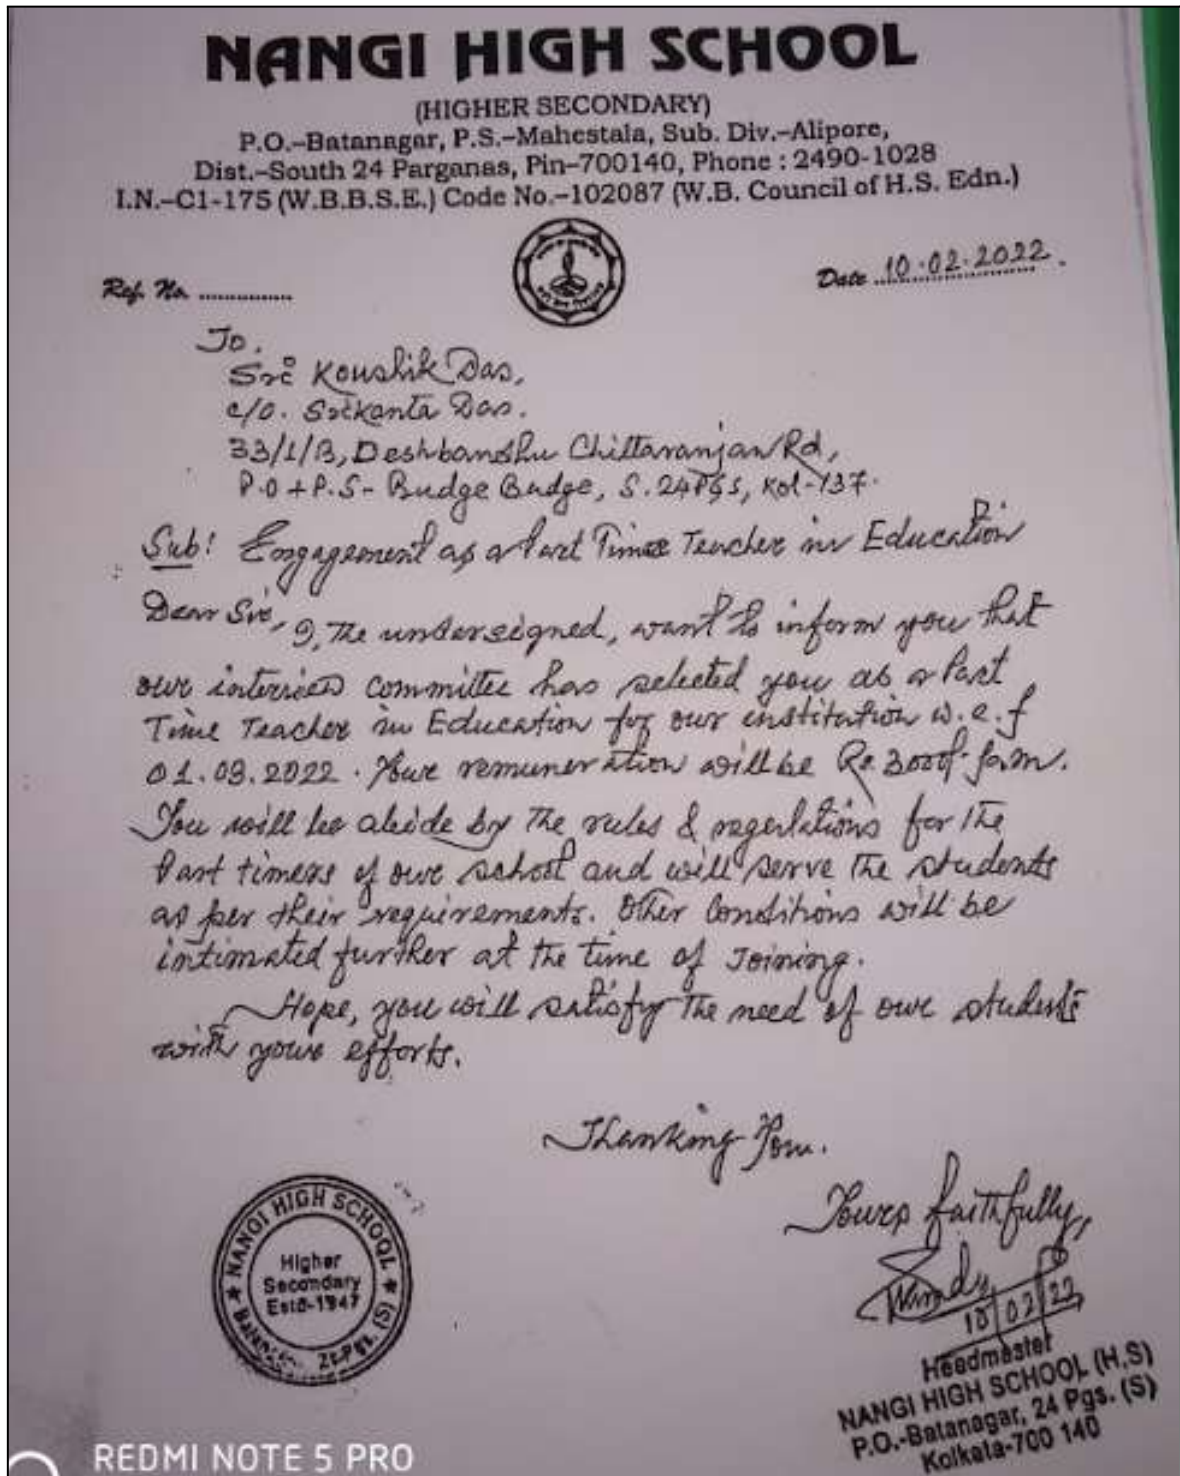 NANGI HIGH SCHOOL
(HIGHER SECONDARY)
P.O.–Batanagar, P.S.–Mahestala, Sub. Div.–Alipore,
Dist.–South 24 Parganas, Pin–700140, Phone : 2490-1028
I.N.–C1-175 (W.B.B.S.E.) Code No.–102087 (W.B. Council of H.S. Edn.)
Ref. No. ..............
Date 10.02.2022.
To,
Sri Koushik Das,
c/o. Srikanta Das.
33/1/B, Deshbandhu Chittaranjan Rd,
P.O + P.S- Budge Budge, S. 24 Pgs, Kol-137.
Sub: Engagement as a Part Time Teacher in Education
Dear Sir,
I, The undersigned, want to inform you that
our interview committee has selected you as a Part
Time Teacher in Education for our institution w.e.f
01.03.2022. Your remuneration will be Rs. 3000/- p.m.
You will be abide by the rules & regulations for the
Part timers of our school and will serve the students
as per their requirements. Other Conditions will be
intimated further at the time of Joining.
Hope, you will satisfy the need of our students
with your efforts.
Thanking You.
Yours faithfully,
10/02/22
Headmaster
NANGI HIGH SCHOOL (H.S)
P.O.-Batanagar, 24 Pgs. (S)
Kolkata-700 140
NANGI HIGH SCHOOL
Higher
Secondary
Estd-1947
24 Pgs. (S)
REDMI NOTE 5 PRO